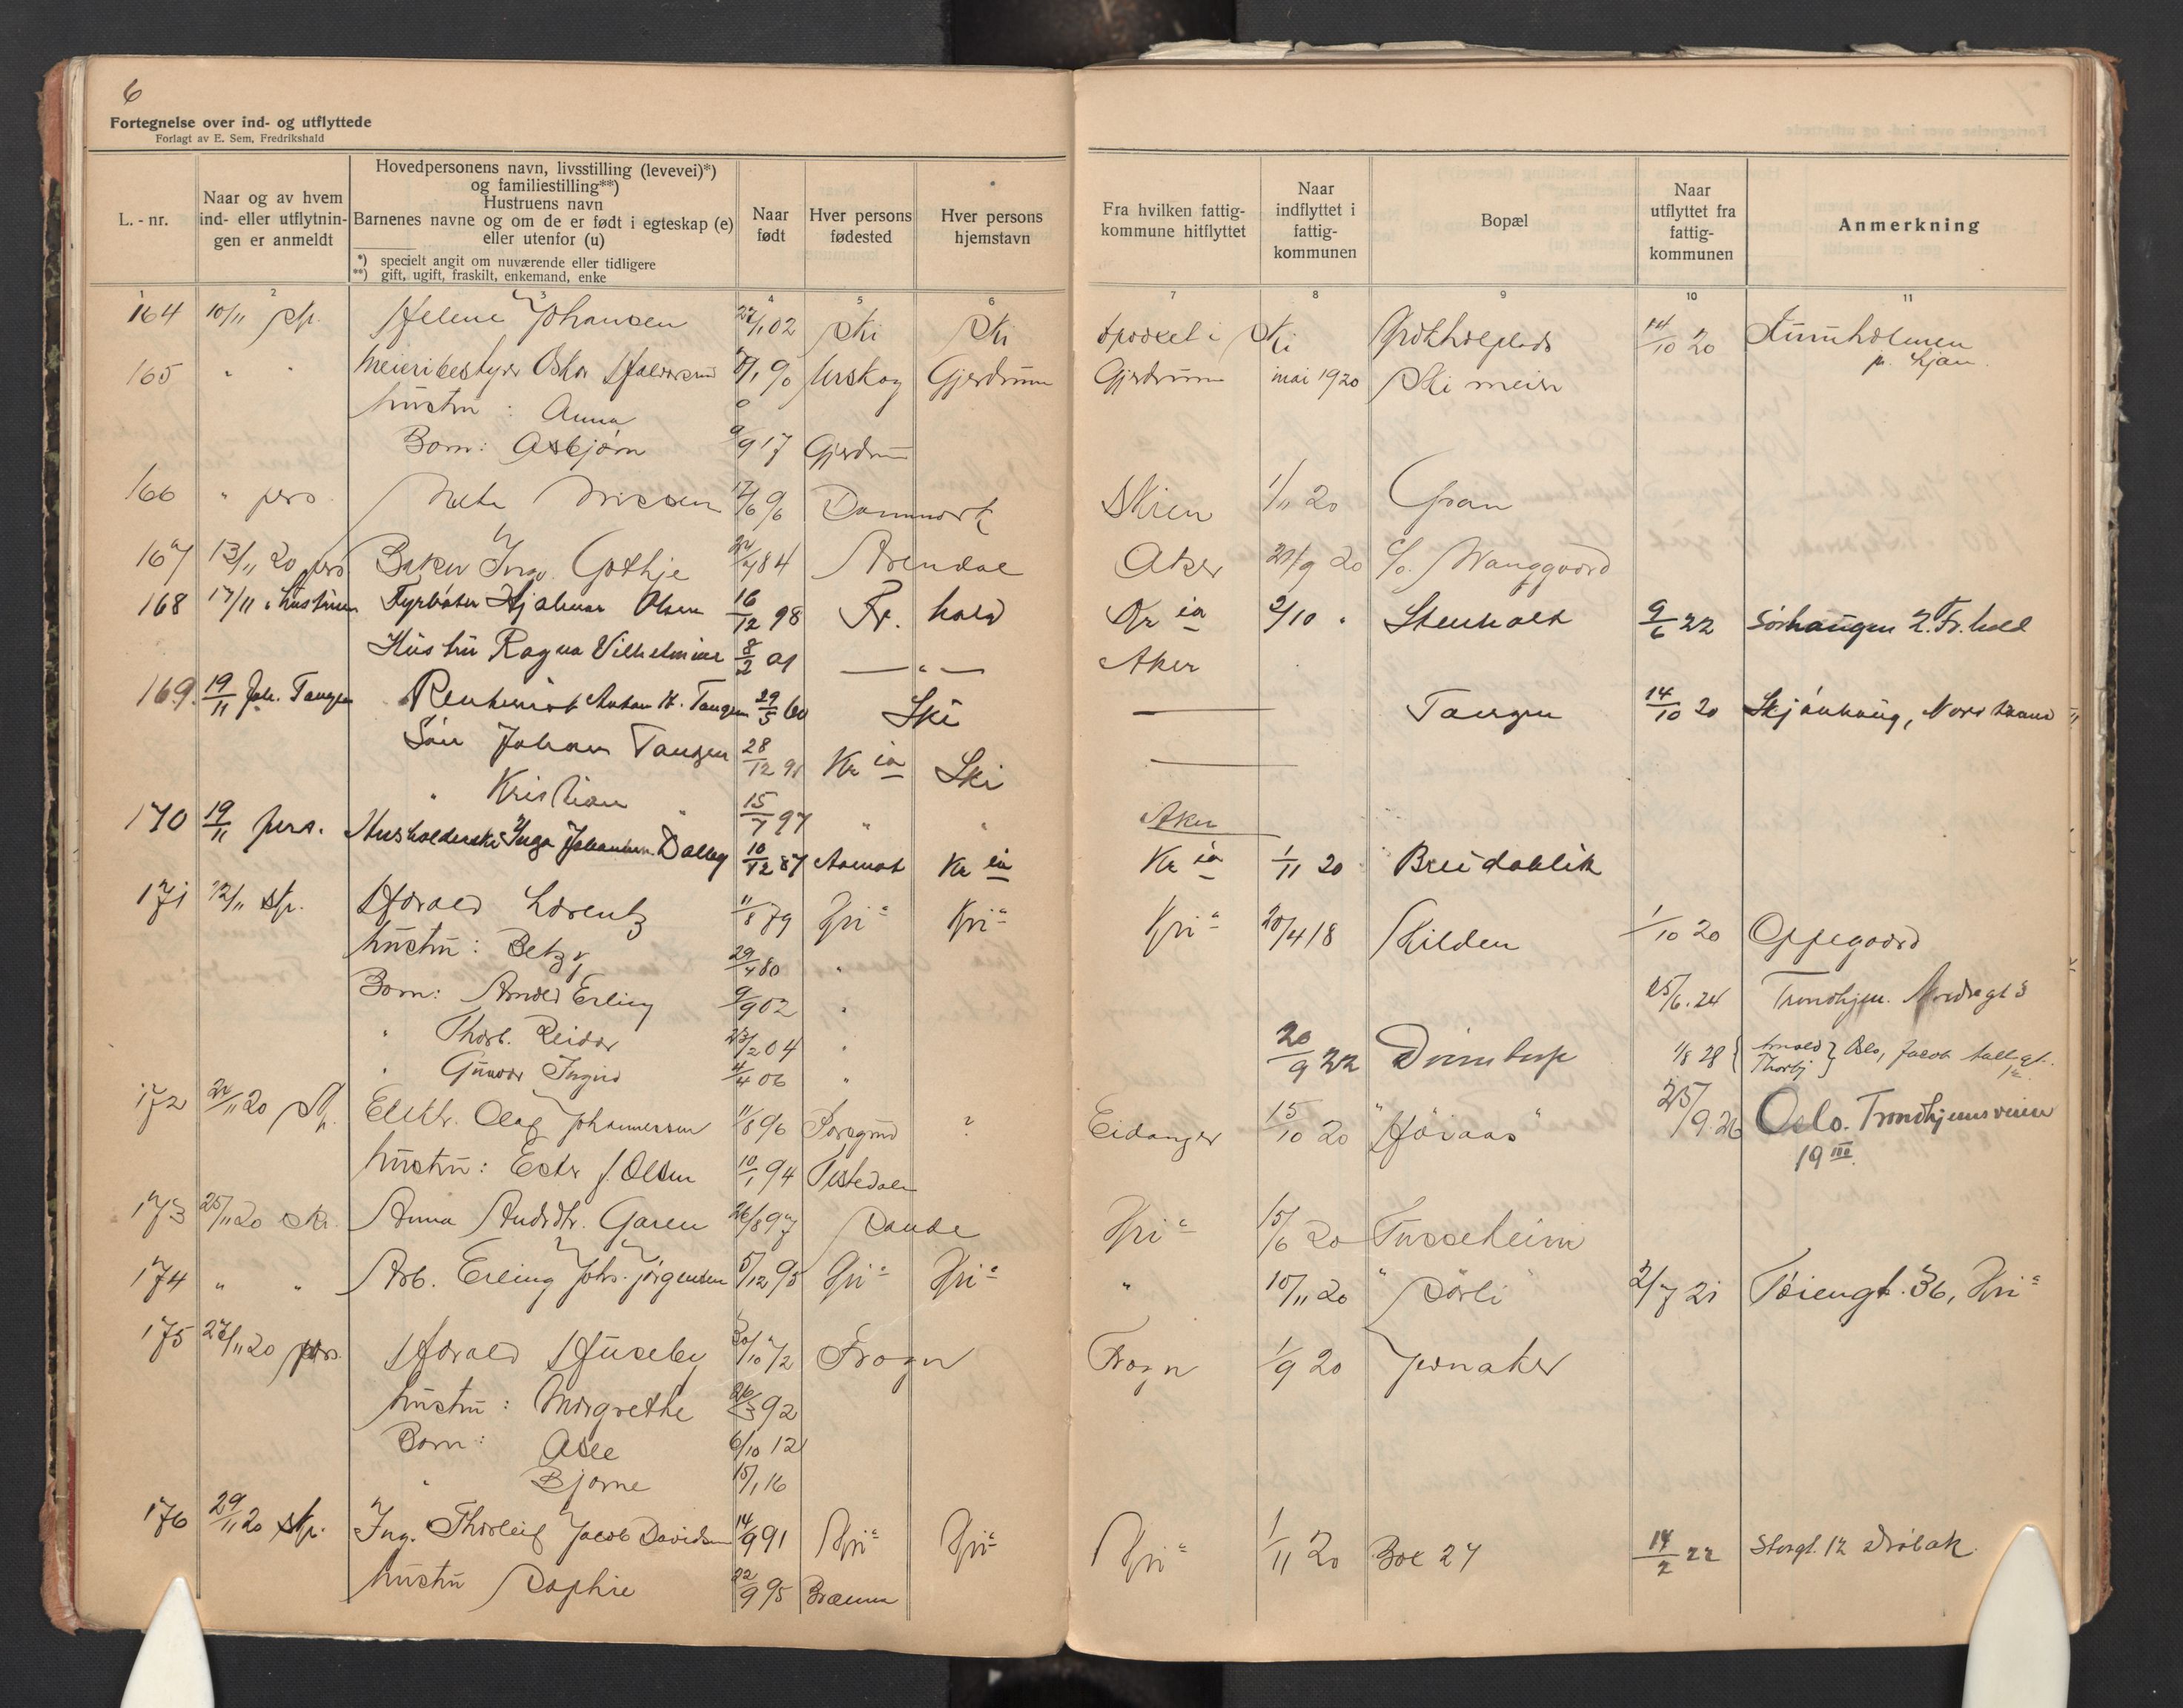 6
Fortegnelse over ind- og utflyttede
Forlagt av E. Sem, Fredrikshald
L. - nr.
Naar og av hvem
ind- eller utflytnin-
gen er anmeldt
Hovedpersonens navn, livsstilling (levevei)*)
og familiestilling**)
Hustruens navn
Barnenes navne og om de er født i egteskap (e)
eller utenfor (u)
*) specielt angit om nuværende eller tidligere
**) gift, ugift, fraskilt, enkemand, enke
Naar
født
Hver persons
fødested
Hver persons
hjemstavn
Fra hvilken fattig-
kommune hitflyttet
Naar
indflyttet i
fattig-
kommunen
Bopæl
Naar
utflyttet fra
fattig-
kommunen
Anmerkning
1 2 3 4 5 6 7 8 9 10 11
164 10/11 Helene Johansen 27/1 02 Ski Ski i Ski 14/10 20
165 " " Meieribestyrer Oskar 90 Urskog Gjerdrum Gjerdrum mai 1920 Ski meieri
hustru : Anna
Barn: Asbjørn 9/9 17 Gjerdrum
166 " pers. Nissen 96 Danmark Skien 1/11 20 Gran
167 13/11 20 pers Baker Ingv. Gothje 84 Arendal Aker 21/9 20 c/o. Wanggaard
168 17/11 " hustruen Fyrbøter Hjalmar Olsen 16/12 98 Fr. hald Kr ia 2/10 " Stenholt 9/6 22 Sørhaugen 2. Fr. hald
Hustru Ragna Vilhelmine 8/2 01 — " — Aker
169. 19/11 Joh. Tangen Rentenist Anton H. Tangen 29/5 60 Ski — Tangen 14/10 20 Nordstrand
Søn Johan Tangen 28/12 91 Kr ia Ski —
" Kristian " 15/7 97 " " Aker
170 19/11 pers. Husholderske Inga Johannes. Dalby 10/12 87 Aamot Kr ia Kr ia 1/11 20 Breidablik
171 22/11 skr. Harald Lorentz 11/8 79 Kri a Kri a Kri a 20/4 18 Kilden 1/10 20 Oppegaard
hustru : Betzy 29/4 80 "
Barn: Arnold Erling 9/9 02 " 25/6. 24 Trondhjem.
" Thorb. Reidar 23/2 04 " 20/9 22 1/8 28 { Arnold Thorbj } Oslo, Jacob Hallsgt.
" Gunvor Ingrid 4/4 06 "
172 22/11 20 Elektr. Olaf Johannessen 11/8 96 Porsgrund ? Eidanger 15/10 20 "Høiaas" 25/9. 26 Oslo. Trondhjemsveien
19 III.
hustru : Ester f. Olsen 10/1 94 Tistedalen
173 25/11 20 skr. Anna Andrdtr. Garen 26/8 97 Sande Kri a 15/6 20 Tusseheim
174 " " Arb. Erling Johs. Jørgensen 5/12 95 Kri a Kri a " 10/11 20 "Sørli" 2/7 21 Tøiengt. 36, Kri a
175 27/11 20 pers. Harald Huseby 30/10 72 Frogn Frogn 1/9 20 Jernaker
hustru : Margrethe 26/3 92
Barn : Asle 6/10 12
" Bjarne 15/1 16
176 29/11 20 skr. Ing. Thorleif Jacob Davidsen 14/9 91 Kri a Kri a Kri a 1/11 20 Box 27 14/2 22 Storgt. 12 Drøbak.
hustru Sophie 22/9 95